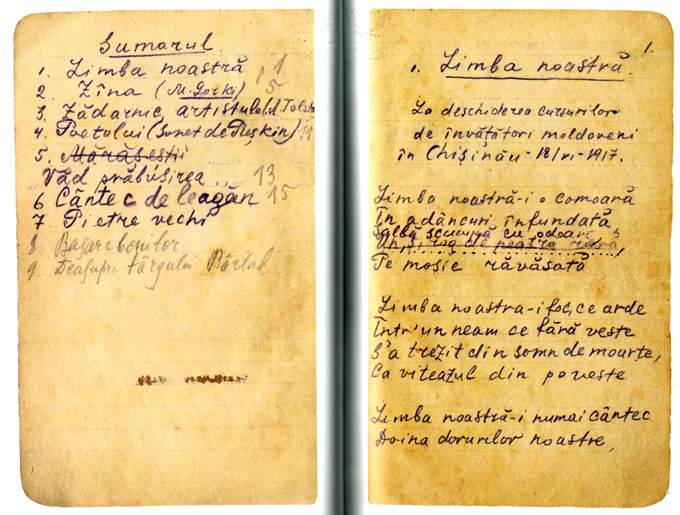 Sumarul
1. Limba noastră 1
2. Zîna (M. Gorki) 5
3. Zădarnic, artistule (A. Tolstoi
4. Poetului (Sonet de Pușkin) 11
5. Mărășești
Văd prăbușirea .. 13
6 Cântec de leagăn 15
7 Pietre vechi
8 Basarabenilor
9 Deasupra târgului Bârlad
1.
1. Limba noastră.
La deschiderea cursurilor
de învățători moldoveni
în Chișinău - 18/VI - 1917.
Limba noastră-i o comoară
În adâncuri înfundată
Salbă scumpă cu odoare
Un șirag de peatră rară
Pe moșie răvăsată
Limba noastra-i foc, ce arde
Într'un neam ce fără veste
S'a trezit din somn de moarte,
Ca viteazul din poveste
Limba noastră-i numai cântec
Doina dorurilor noastre,